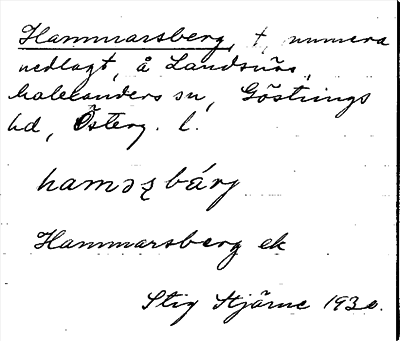 Hammarsberg, t, numera
nedlagt, å Landsnäs,
Malexanders sn, Göstrings
hd, Österg. l.
hamərbárj
Hammarsberg ek
Stig Stjärne 1930.